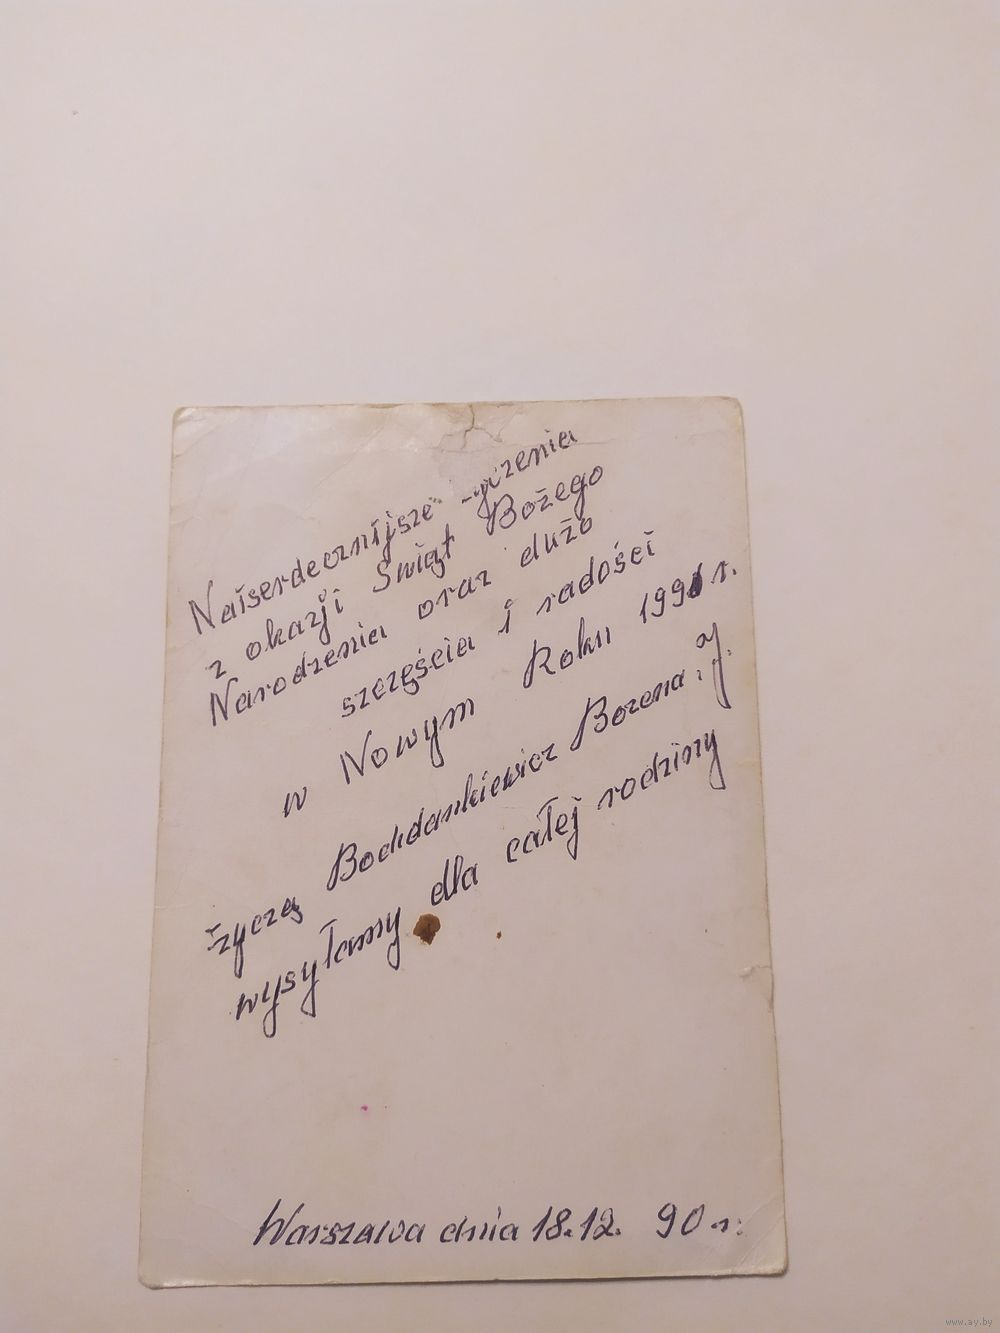 Naiserdecznijsze życzenia
z okazji Świąt Bożego
Narodzenia oraz dużo
szczęścia i radości
w Nowym Roku 1991 r.
życzą Bochdankiewicz Bozena i J.
wysyłamy dla całej rodziny
Warszawa dnia 18.12. 90 r.
www.ay.by